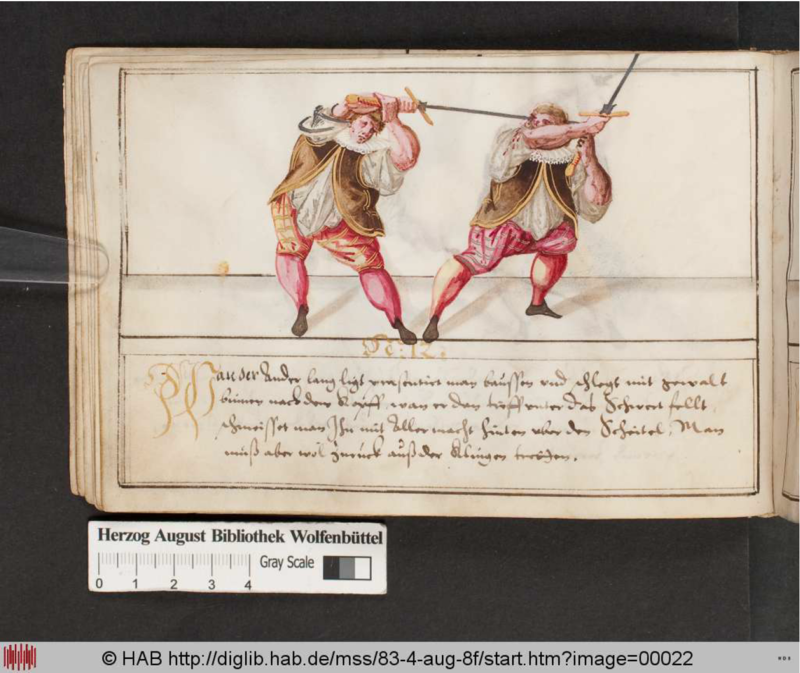 N: 12:
Wan der Ander lang ligt præsentirt man daussen vnd schlegt mit gewalt
nach dem Kopff, wan er dan tieff vnter das Schwert fellt
schmeisset man Ihn mit Aller macht hinten vber den Scheitel. Man
muß aber wol zurück auß der Klingen tretten.
Herzog August Bibliothek Wolfenbüttel
Gray Scale
0 1 2 3 4
© HAB http://diglib.hab.de/mss/83-4-aug-8f/start.htm?image=00022